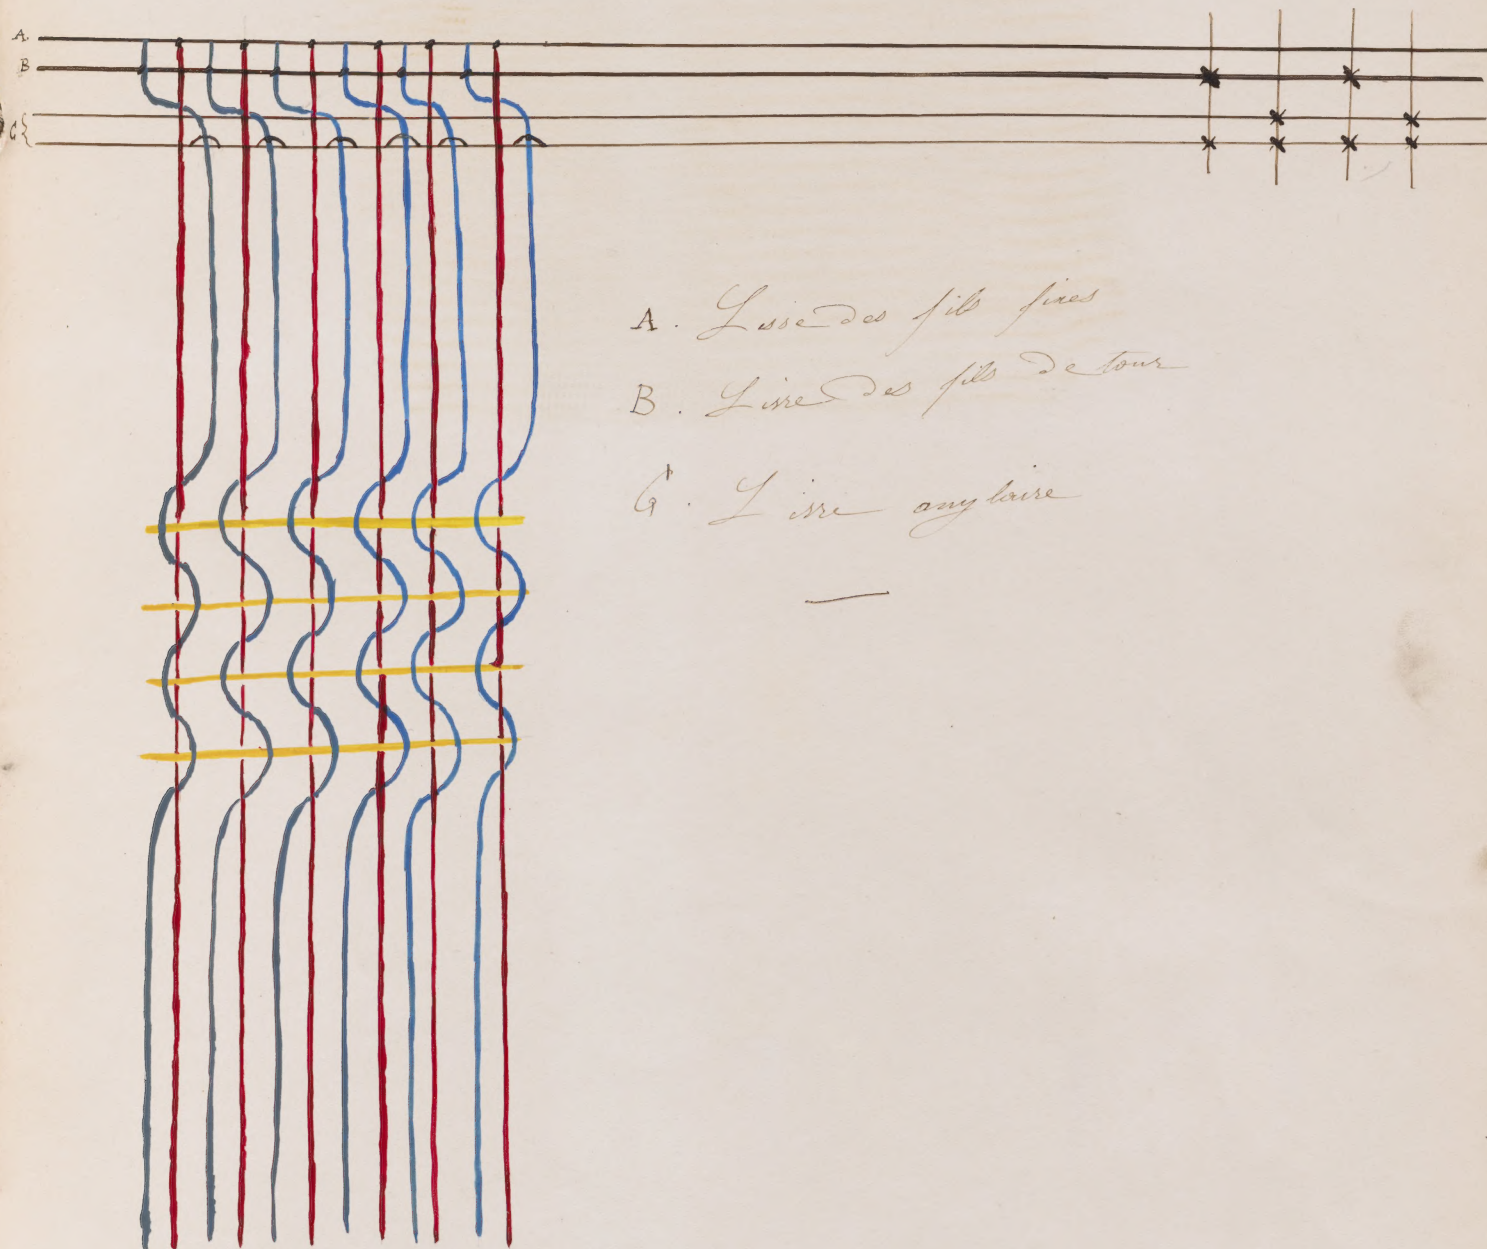 A
B
C
A. Lisse des fils fixes
B. Lisse des fils de tour
C. Lisse anglaise